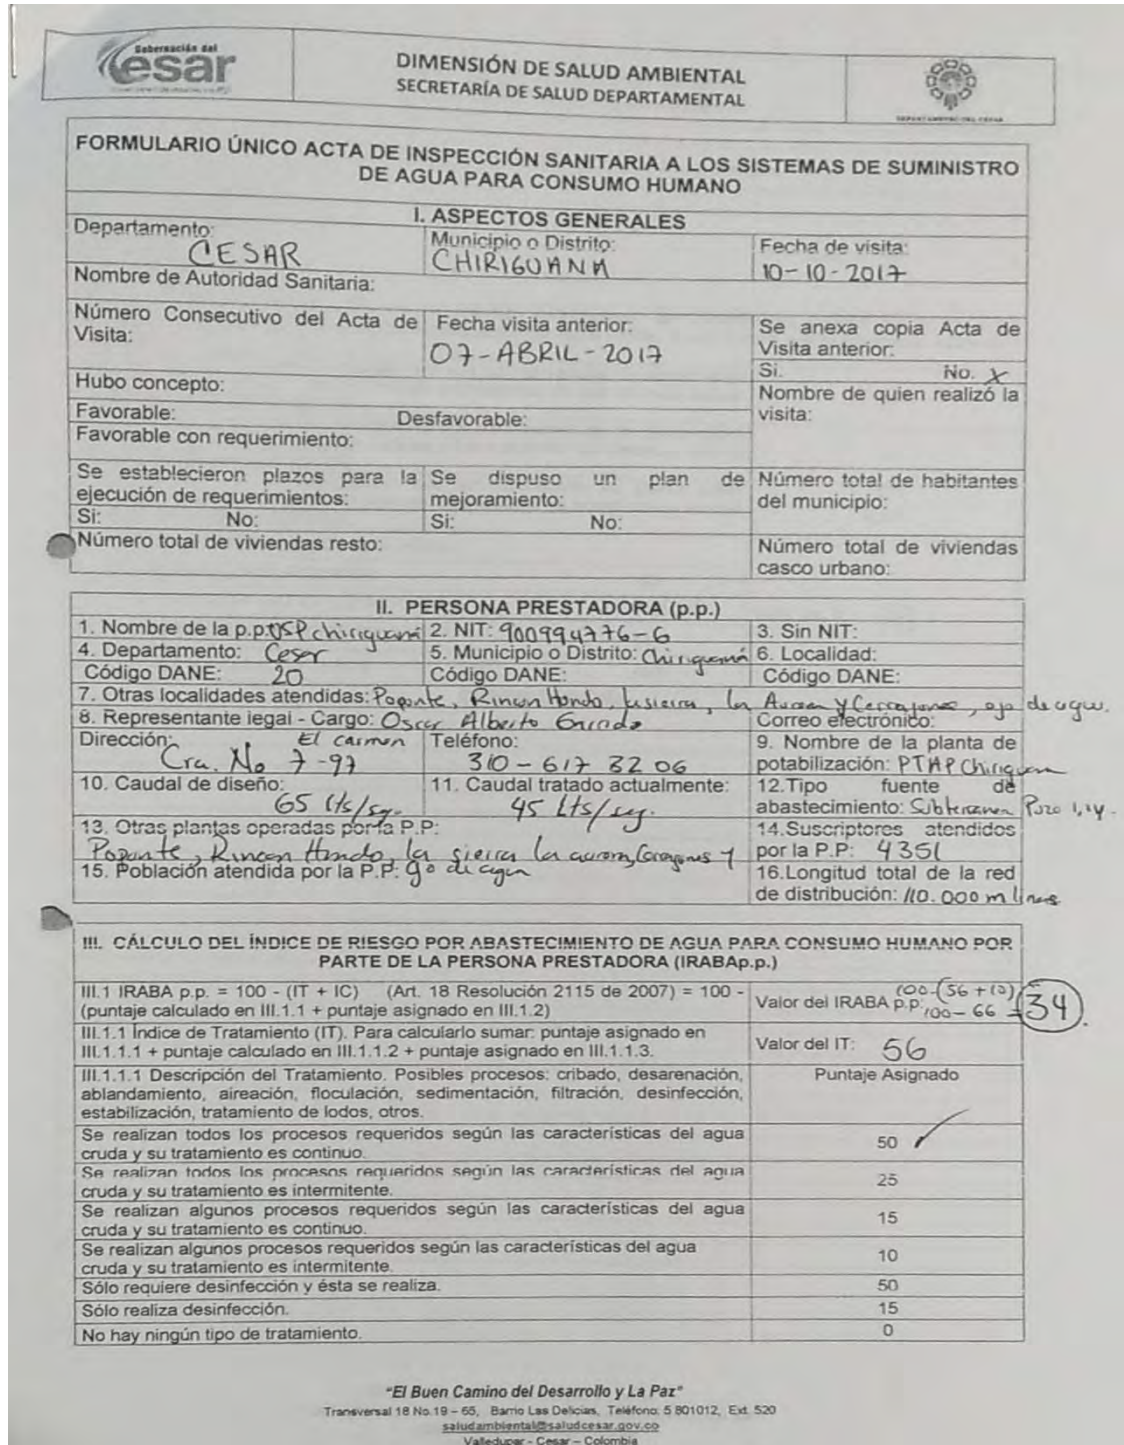 Gobernación del
Cesar
DIMENSIÓN DE SALUD AMBIENTAL
SECRETARÍA DE SALUD DEPARTAMENTAL
DEPARTAMENTO DEL CESAR
FORMULARIO ÚNICO ACTA DE INSPECCIÓN SANITARIA A LOS SISTEMAS DE SUMINISTRO
DE AGUA PARA CONSUMO HUMANO
I. ASPECTOS GENERALES
Departamento:
CESAR
Municipio o Distrito:
CHIRIGUANA
Fecha de visita:
10-10-2017
Nombre de Autoridad Sanitaria:
Número Consecutivo del Acta de
Visita:
Fecha visita anterior:
07-ABRIL-2017
Se anexa copia Acta de
Visita anterior:
Si. No. X
Hubo concepto:
Nombre de quien realizó la
visita:
Favorable: Desfavorable:
Favorable con requerimiento:
Se establecieron plazos para la
ejecución de requerimientos:
Si: No:
Se dispuso un plan de
mejoramiento:
Si: No:
Número total de habitantes
del municipio:
Número total de viviendas resto:
Número total de viviendas
casco urbano:
II. PERSONA PRESTADORA (p.p.)
1. Nombre de la p.p: OSP chiriguaná 2. NIT: 900994776-6 3. Sin NIT:
4. Departamento: Cesar 5. Municipio o Distrito: Chiriguaná 6. Localidad:
Código DANE: 20 Código DANE: Código DANE:
7. Otras localidades atendidas: Poponte, Rincon Hondo, la sierra, la Aurora y Cerrajones, ojo de agua.
8. Representante legal - Cargo: Oscar Alberto
Correo electrónico:
Dirección: El Carmen
Cra. No 7-97
Teléfono:
310-617 32 06
9. Nombre de la planta de
potabilización: PTAP Chiriguana
10. Caudal de diseño:
65 lts/seg.
11. Caudal tratado actualmente:
45 Lts/seg.
12.Tipo fuente de
abastecimiento: Subterranea Pozo 1,
13. Otras plantas operadas por la P.P:
Poponte, Rincon Hondo, la sierra la aurora, Cerrajones y
14.Suscriptores atendidos
por la P.P: 4351
15. Población atendida por la P.P: ojo de agua
16.Longitud total de la red
de distribución: 110.000 m
III. CÁLCULO DEL ÍNDICE DE RIESGO POR ABASTECIMIENTO DE AGUA PARA CONSUMO HUMANO POR
PARTE DE LA PERSONA PRESTADORA (IRABAp.p.)
III.1 IRABA p.p. = 100 - (IT + IC) (Art. 18 Resolución 2115 de 2007) = 100 -
(puntaje calculado en III.1.1 + puntaje asignado en III.1.2)
Valor del IRABA p.p: 100-(56+10)=
100-66 = 34.
III.1.1 Índice de Tratamiento (IT). Para calcularlo sumar: puntaje asignado en
III.1.1.1 + puntaje calculado en III.1.1.2 + puntaje asignado en III.1.1.3.
Valor del IT: 56
III.1.1.1 Descripción del Tratamiento. Posibles procesos: cribado, desarenación,
ablandamiento, aireación, floculación, sedimentación, filtración, desinfección,
estabilización, tratamiento de lodos, otros.
Puntaje Asignado
Se realizan todos los procesos requeridos según las características del agua
cruda y su tratamiento es continuo.
50 ✓
Se realizan todos los procesos requeridos según las características del agua
cruda y su tratamiento es intermitente.
25
Se realizan algunos procesos requeridos según las características del agua
cruda y su tratamiento es continuo.
15
Se realizan algunos procesos requeridos según las características del agua
cruda y su tratamiento es intermitente.
10
Sólo requiere desinfección y ésta se realiza. 50
Sólo realiza desinfección. 15
No hay ningún tipo de tratamiento. 0
"El Buen Camino del Desarrollo y La Paz"
Transversal 18 No.19 – 65, Barrio Las Delicias, Teléfono: 5 801012, Ext. 520
saludambiental@saludcesar.gov.co
Valledupar - Cesar – Colombia